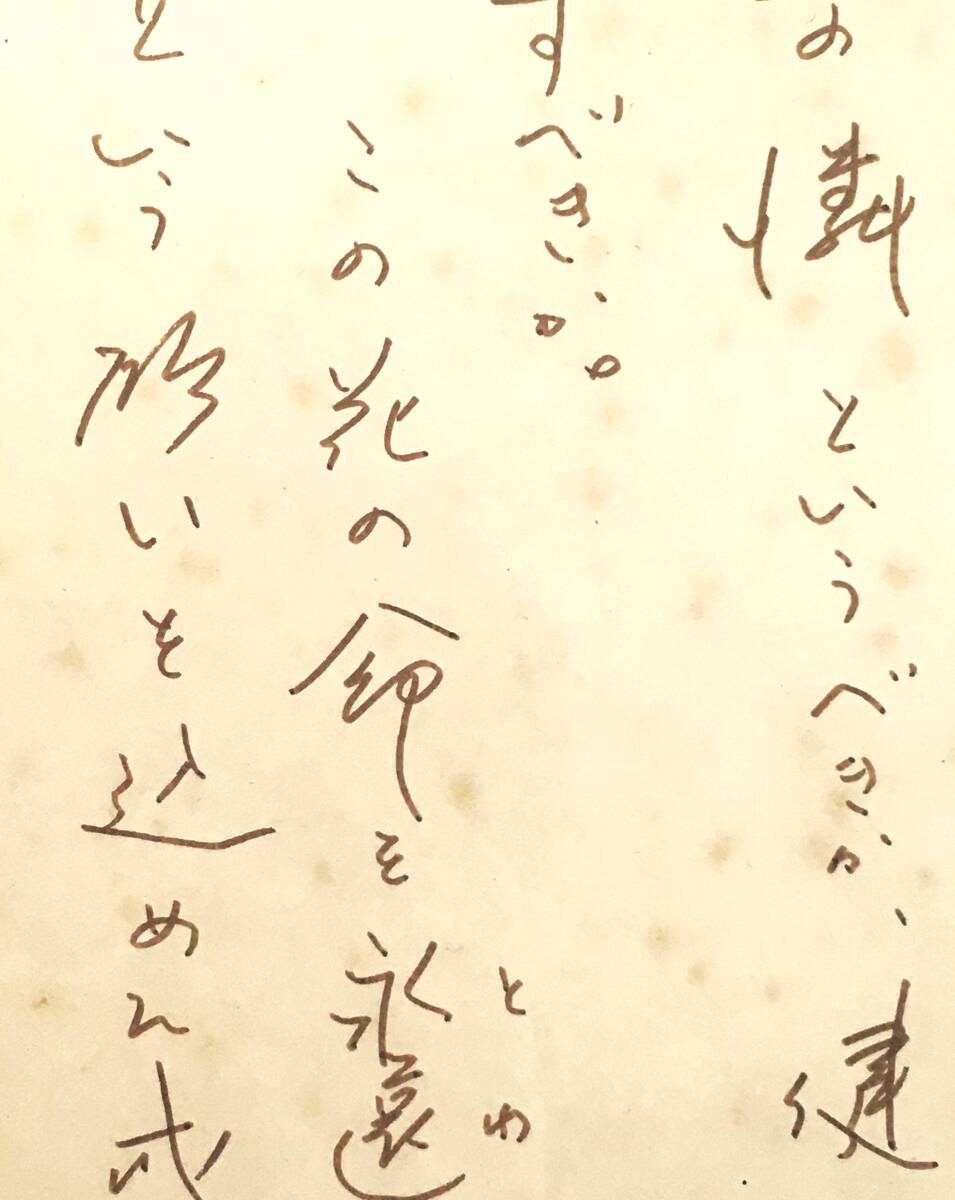 可憐というべきか、健
すべきか。
とわ
この花の命を永遠
という願いを込めて